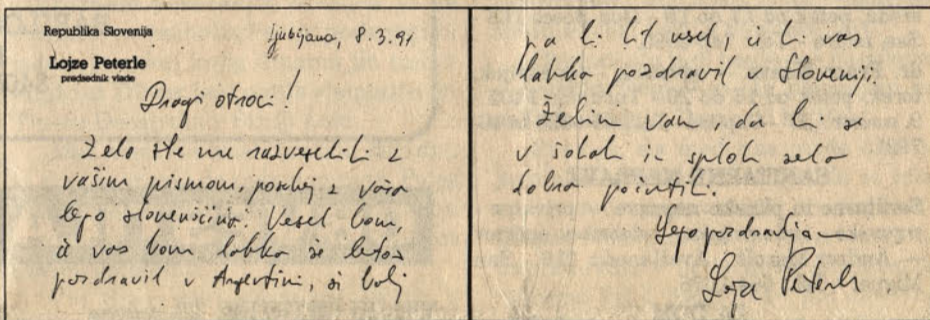 Republika Slovenija
Lojze Peterle
predsednik vlade
Ljubljana, 8.3.91
Dragi otroci!
Zelo ste me razveselili z
vašim pismom, posebej z vašo
lepo slovenščino! Vesel bom,
če vas bom lahko še letos
pozdravil v Argentini, še bolj
pa bi bil vesel, če bi vas
lahko pozdravil v Sloveniji.
Želim vam, da bi se
v šolah in sploh zelo
dobro počutili.
Lepo pozdravljam
Lojze Peterle